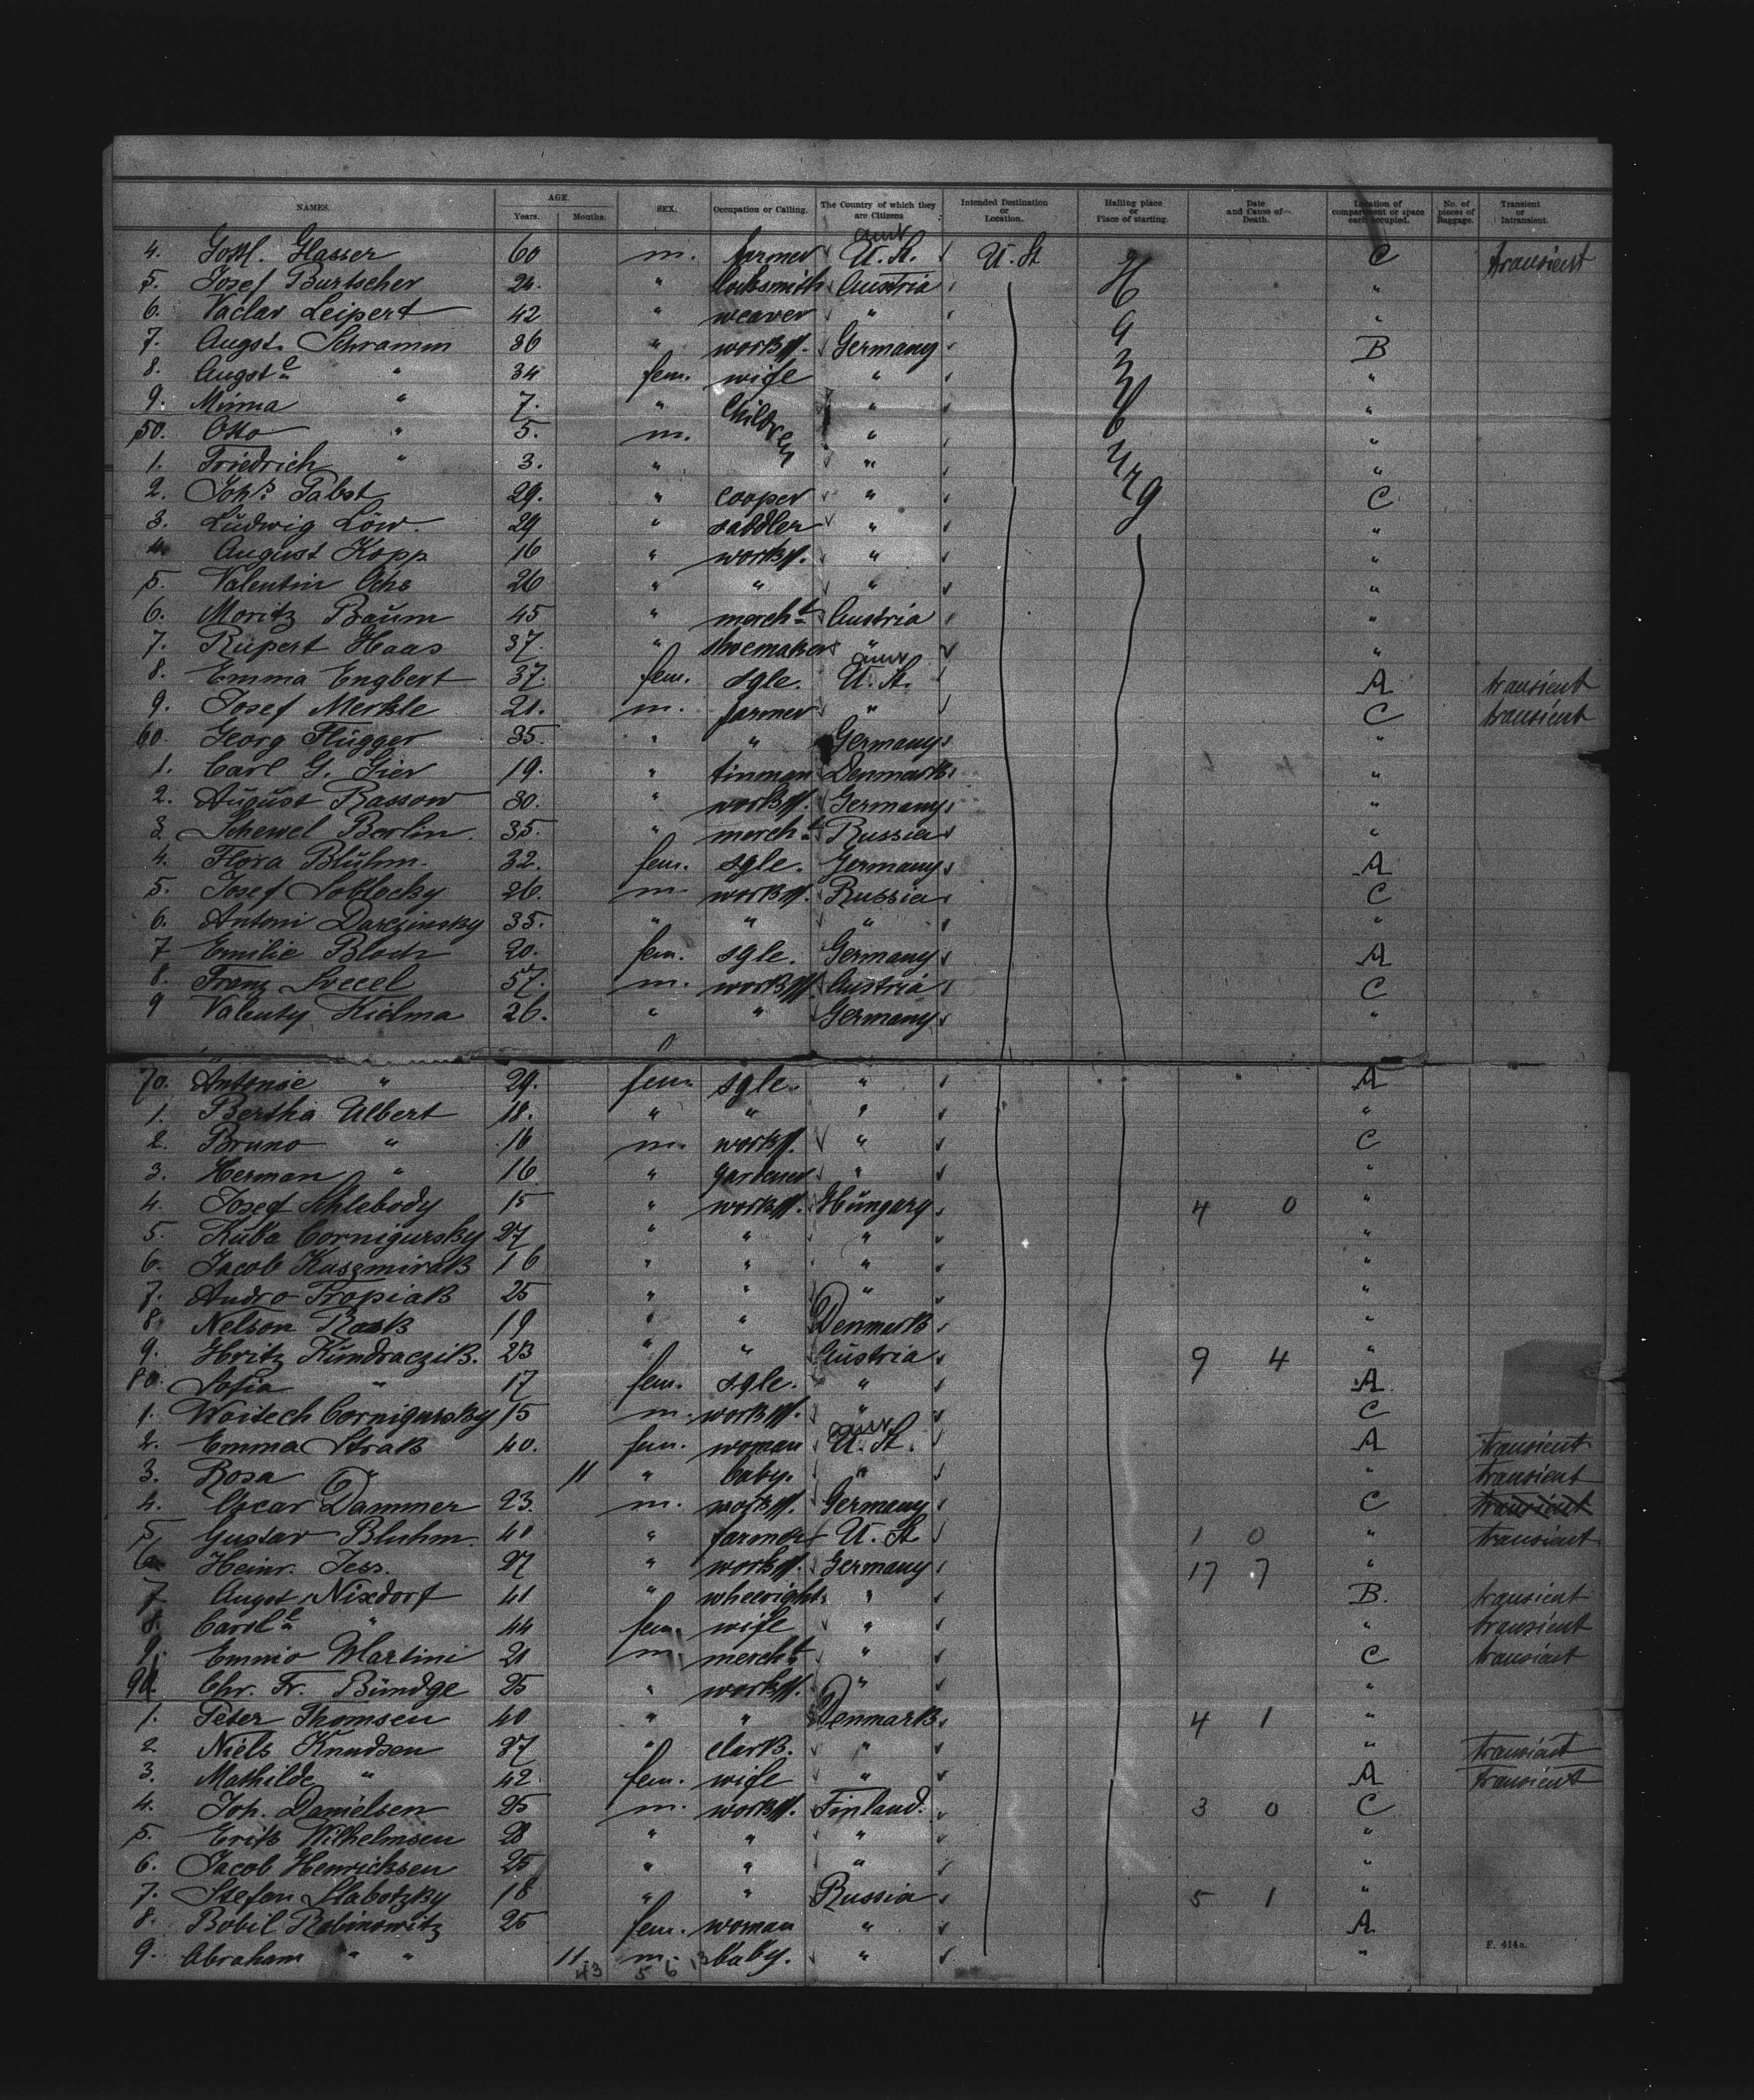 NAMES. AGE. Years. Months. SEX. Occupation or Calling. The Country of which they are Citizens Intended Destination or Location. Hailing place or Place of starting. Date and Cause of Death. Location of compartment or space each occupied. No. of pieces of Baggage. Transient or Intransient.
4. Gottl. Glasser 60 m. farmer U. St. U. St. C transient
5. Josef Burtscher 24. " locksmith Austria "
6. Vaclav Leipert 42 " weaver " "
7. Augst. Schramm 36 " Germany B
8. Augste " 34 fem. wife " "
9. Minna " 7. " Children " "
50. Otto " 5. m. " "
1. Friedrich " 3. " " "
2. Johs. Pabst 29. " cooper " C
3. Ludwig Löw. 29 " saddler " "
4. August Kopp 16 " " "
5. Valentin Ochs 26 " " " "
6. Moritz Baum 45 " mercht Austria "
7. Rupert Haas 37. " shoemaker " "
8. Emma Engbert 37. fem. sgle. U. St. A transient
9. Josef Merkle 21. m. farmer " C transient
60. Georg Flügger 35. " " Germany "
1. Carl G. Gier 19. " tinman Denmark "
2. August Rassow 30. " Germany "
3. Schewel Berlin 35. " mercht Russia "
4. Flora Bluhm. 32. fem. sgle. Germany A
5. Josef 26. m. Russia C
6. Antoni Darczinsky 35. " " " "
7 Emilie Bloch 20. fem. sgle. Germany A
8. Franz 57. m. Austria C
9 Valenty Kielma 26. " " Germany "
70. Antonie " 29. fem. sgle. " A
1. Bertha Ulbert 18. " " " "
2. Bruno " 16 m. " C
3. Herman " 16 " gardener " "
4. Josef Schlebody 15 " Hungary 4 0 "
5. Kuba Cornigursky 27 " " " "
6. Jacob Kuszmirak 16 " " " "
7. Andro Tropiak 25 " " " "
8. Nelson Rask 19 " " Denmark "
9. Hritz Kundraczik. 23 " " Austria 9 4 "
80. Sofia " 17 fem. sgle. " A
1. Woitech Cornigursky 15 m. " C
2. Emma Strak 40. fem. woman U. St. A transient
3. Rosa " 11 " baby. " " transient
4. Oscar Dammer 23. m. Germany C transient
5 Gustav Bluhm. 41 " farmer U. St 1 0 " transient
6 Heinr. Jess. 27 " Germany 17 7 "
7 Augst Nixdorf 41 " " B. transient
8. Carole " 44 fem. wife " " transient
9. Martini 21 m. mercht " C transient
90. Chr. Fr. Bündge 25 " " "
1. Peter Thomsen 40 " " Denmark 4 1 "
2 Niels Knudsen 37 " clark. " " transient
3. Mathilde " 42. fem. wife " A transient
4. Joh. Danielsen 25 m. Finland. 3 0 C
5. Erik Wilhelmsen 28 " " " "
6. Jacob Henricksen 25 " " " "
7. Stefan Slabotzky 18 " " Russia 5 1 "
8. Bobil Rabinowitz 25 fem. woman " A
9. Abraham " " 11 m. baby. " "
43 5 6 13
F. 414a.